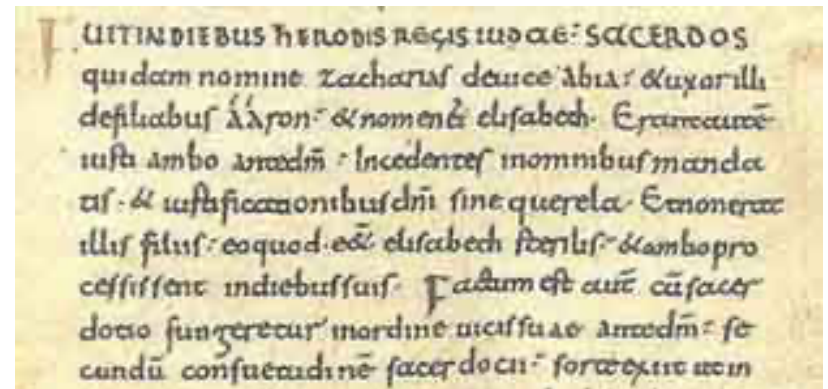 FUIT IN DIEBUS HERODIS REGIS IUDAE: SACERDOS
quidam nomine zacharias deuice abia: & uxor illi
defiliabus aaron: & nomen ei elisabeth. Erant autē
iusti ambo ante dm̄: Incedentes in omnibus manda
tis. & iustificationibus dn̄i sine querela. Et non erat
illis filius: eo quod eēt elisabeth sterilis: & ambo pro
cessissent in diebus suis. Factum est aut̄ cū sacer
dotio fungeretur in ordine uicis suae ante dm̄: se
cundū consuetudinē sacerdotii: sorte exiit ut in